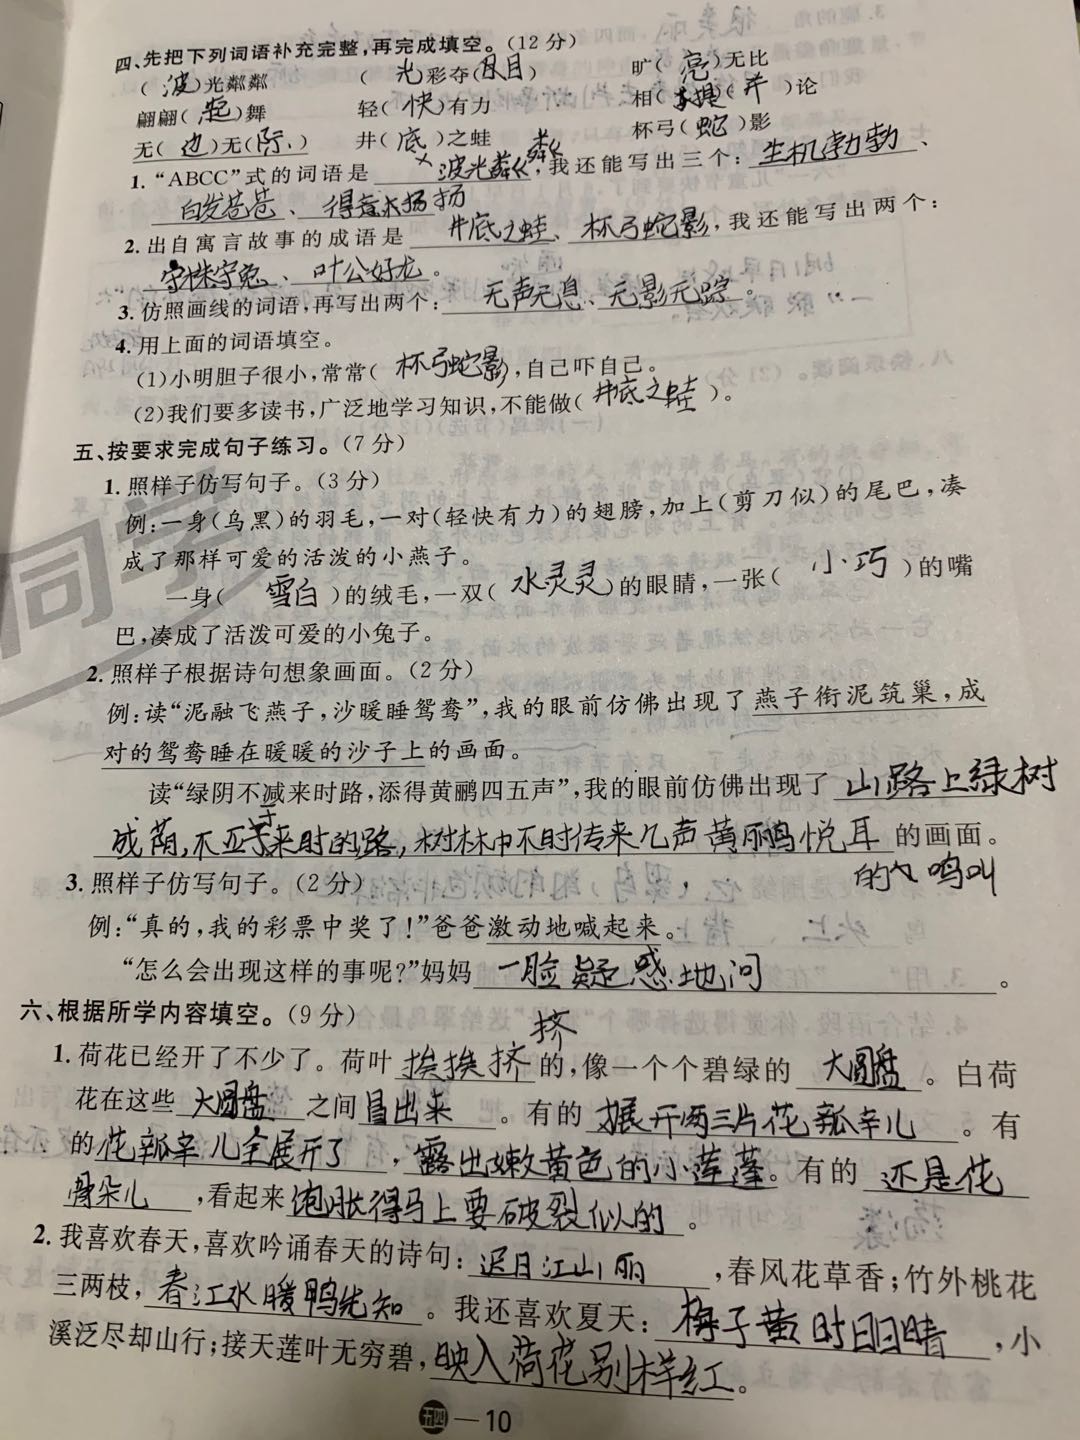 四、先把下列词语补充完整,再完成填空。(12分)
(波)光粼粼 (光)彩夺(目) 旷(亮)无比
翩翩(起)舞 轻(快)有力 相(提)(并)论
无(边)无(际) 井(底)之蛙 杯弓(蛇)影
1.“ABCC”式的词语是 波光粼粼,我还能写出三个:生机勃勃、
白发苍苍、得意扬扬
2.出自寓言故事的成语是 井底之蛙、杯弓蛇影,我还能写出两个:
守株守兔、叶公好龙。
3.仿照画线的词语,再写出两个:无声无息、无影无踪。
4.用上面的词语填空。
(1)小明胆子很小,常常(杯弓蛇影,自己吓自己。
(2)我们要多读书,广泛地学习知识,不能做(井底之蛙)。
五、按要求完成句子练习。(7分)
1.照样子仿写句子。(3分)
例:一身(乌黑)的羽毛,一对(轻快有力)的翅膀,加上(剪刀似)的尾巴,凑
成了那样可爱的活泼的小燕子。
一身(雪白)的绒毛,一双(水灵灵)的眼睛,一张(小巧)的嘴
巴,凑成了活泼可爱的小兔子。
2.照样子根据诗句想象画面。(2分)
例:读“泥融飞燕子,沙暖睡鸳鸯”,我的眼前仿佛出现了燕子衔泥筑巢,成
对的鸳鸯睡在暖暖的沙子上的画面。
读“绿阴不减来时路,添得黄鹂四五声”,我的眼前仿佛出现了 山路上绿树
成荫,不亚于来时的路,树林中不时传来几声黄鹂悦耳 的画面。
的鸣叫
3.照样子仿写句子。(2分)
例:“真的,我的彩票中奖了!”爸爸激动地喊起来。
“怎么会出现这样的事呢?”妈妈 一脸疑惑地问。
六、根据所学内容填空。(9分)
1.荷花已经开了不少了。荷叶 挨挨挤挤 的,像一个个碧绿的 大圆盘。白荷
花在这些 大圆盘 之间 冒出来。有的 展开两三片花瓣儿。有
的花瓣儿全展开了,露出嫩黄色的小莲蓬。有的 还是花
骨朵儿,看起来饱胀得马上要破裂似的。
2.我喜欢春天,喜欢吟诵春天的诗句:迟日江山丽,春风花草香;竹外桃花
三两枝,春江水暖鸭先知。我还喜欢夏天:梅子黄时日日晴,小
溪泛尽却山行;接天莲叶无穷碧,映入荷花别样红。
五四—10
同学